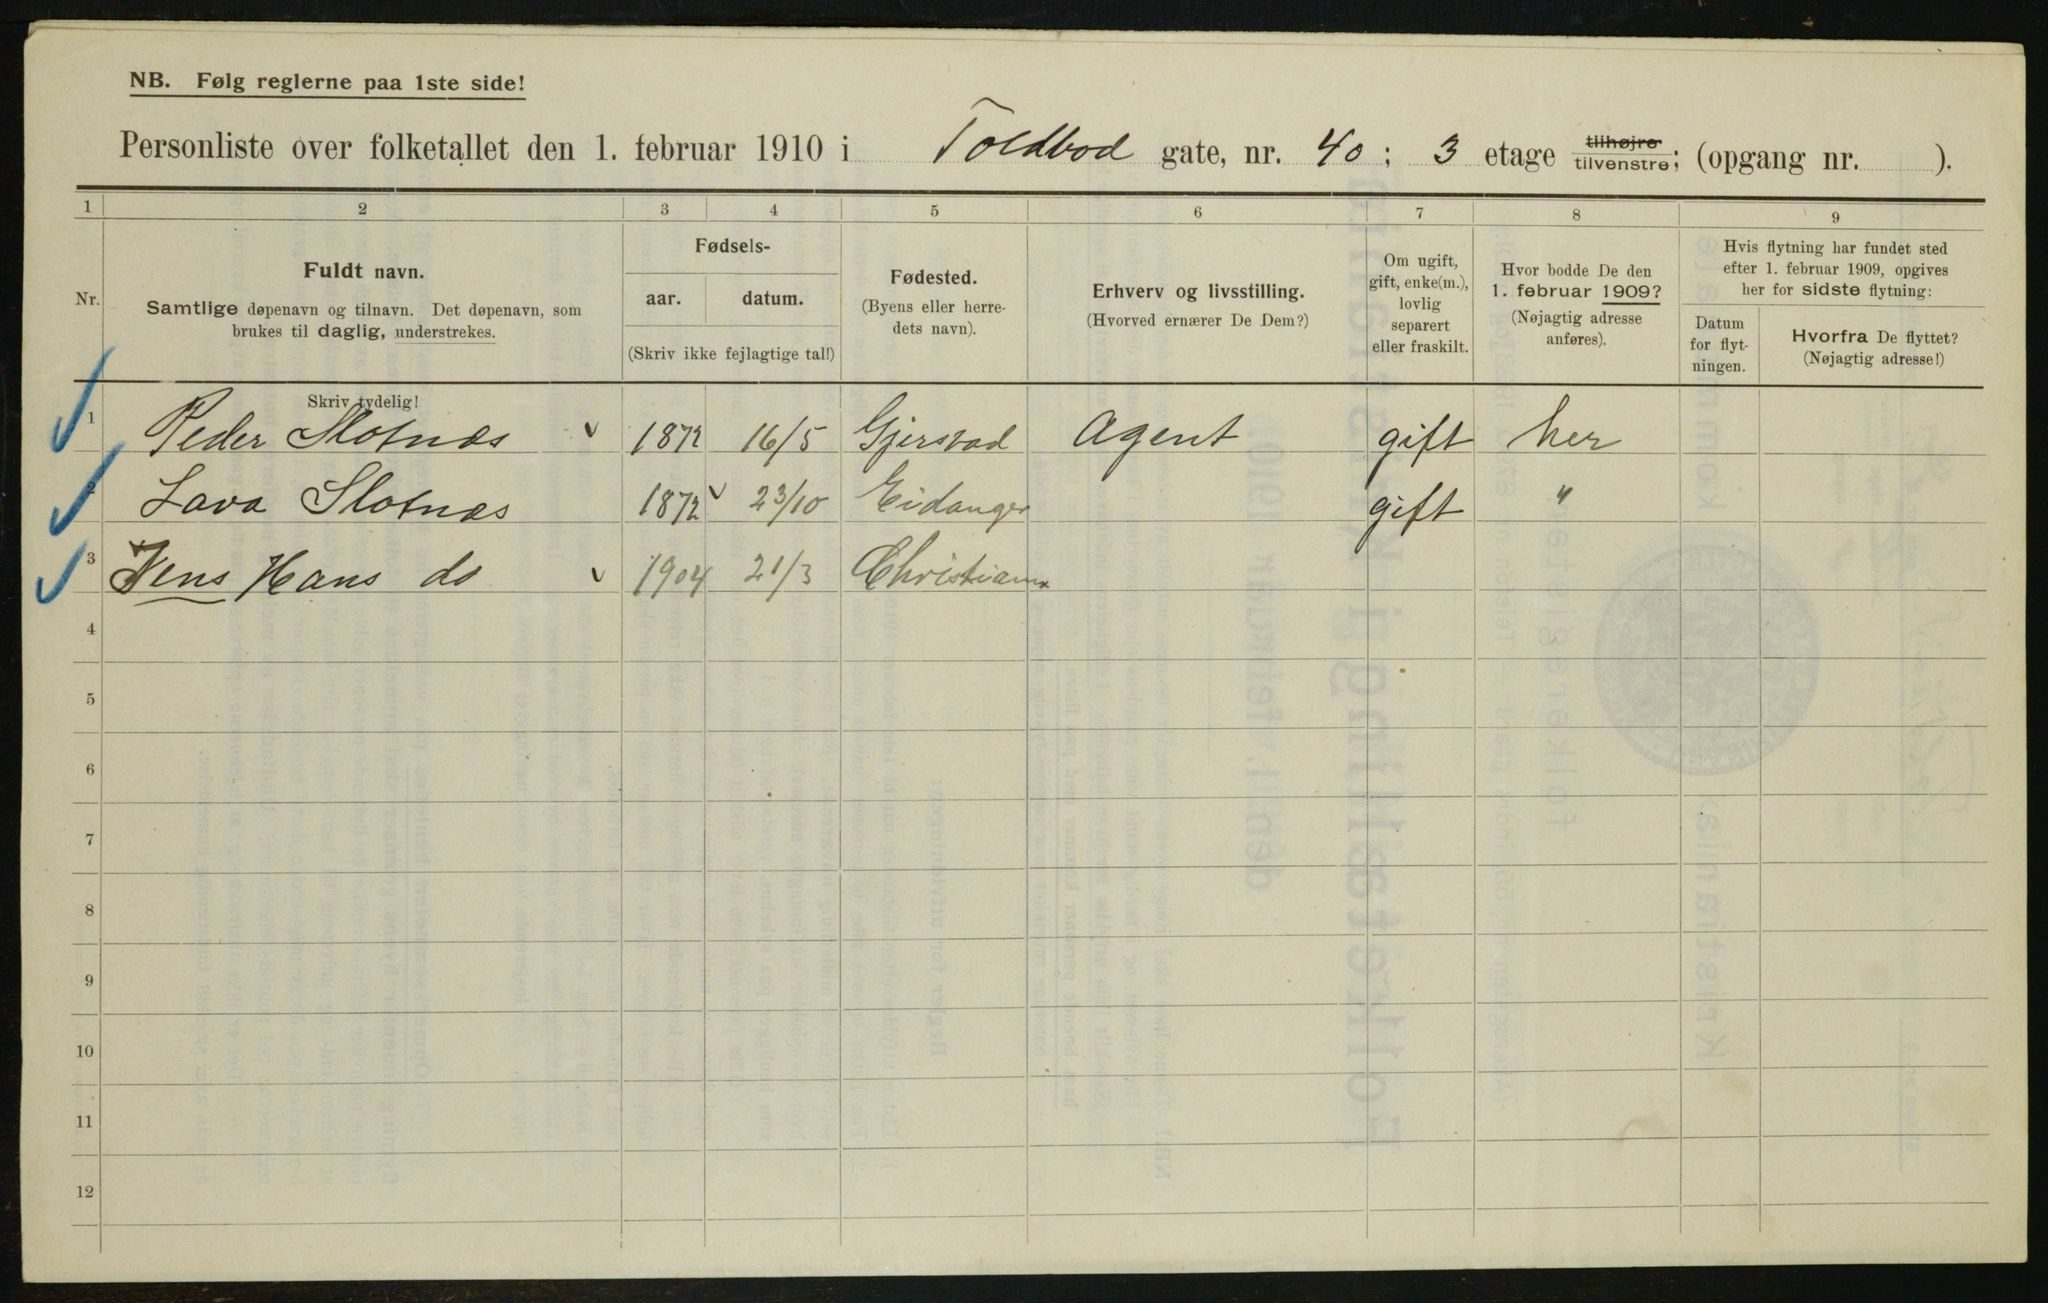 NB. Følg reglerne paa 1ste side!
Personliste over folketallet den 1. februar 1910 i Toldbod gate, nr. 40 ; 3 etage tilhøjre tilvenstre; (opgang nr. ).
1 2 3 4 5 6 7 8 9
Nr.
Fuldt navn.
Samtlige døpenavn og tilnavn. Det døpenavn, som
brukes til daglig, understrekes.
Fødsels-
aar. datum.
(Skriv ikke fejlagtige tal!)
Fødested.
(Byens eller herre-
dets navn).
Erhverv og livsstilling.
(Hvorved ernærer De Dem?)
Om ugift,
gift, enke(m.),
lovlig
separert
eller fraskilt.
Hvor bodde De den
1. februar 1909?
(Nøjagtig adresse
anføres).
Hvis flytning har fundet sted
efter 1. februar 1909, opgives
her for sidste flytning:
Datum
for flyt-
ningen.
Hvorfra De flyttet?
(Nøjagtig adresse!)
Skriv tydelig!
1 Peder Slotnæs 1872 16/5 Gjerstad Agent gift her
2 Lava Slotnæs 1872 23/10 Eidanger gift "
3 Jens Hans do 1904 21/3 Christiania
4
5
6
7
8
9
10
11
12